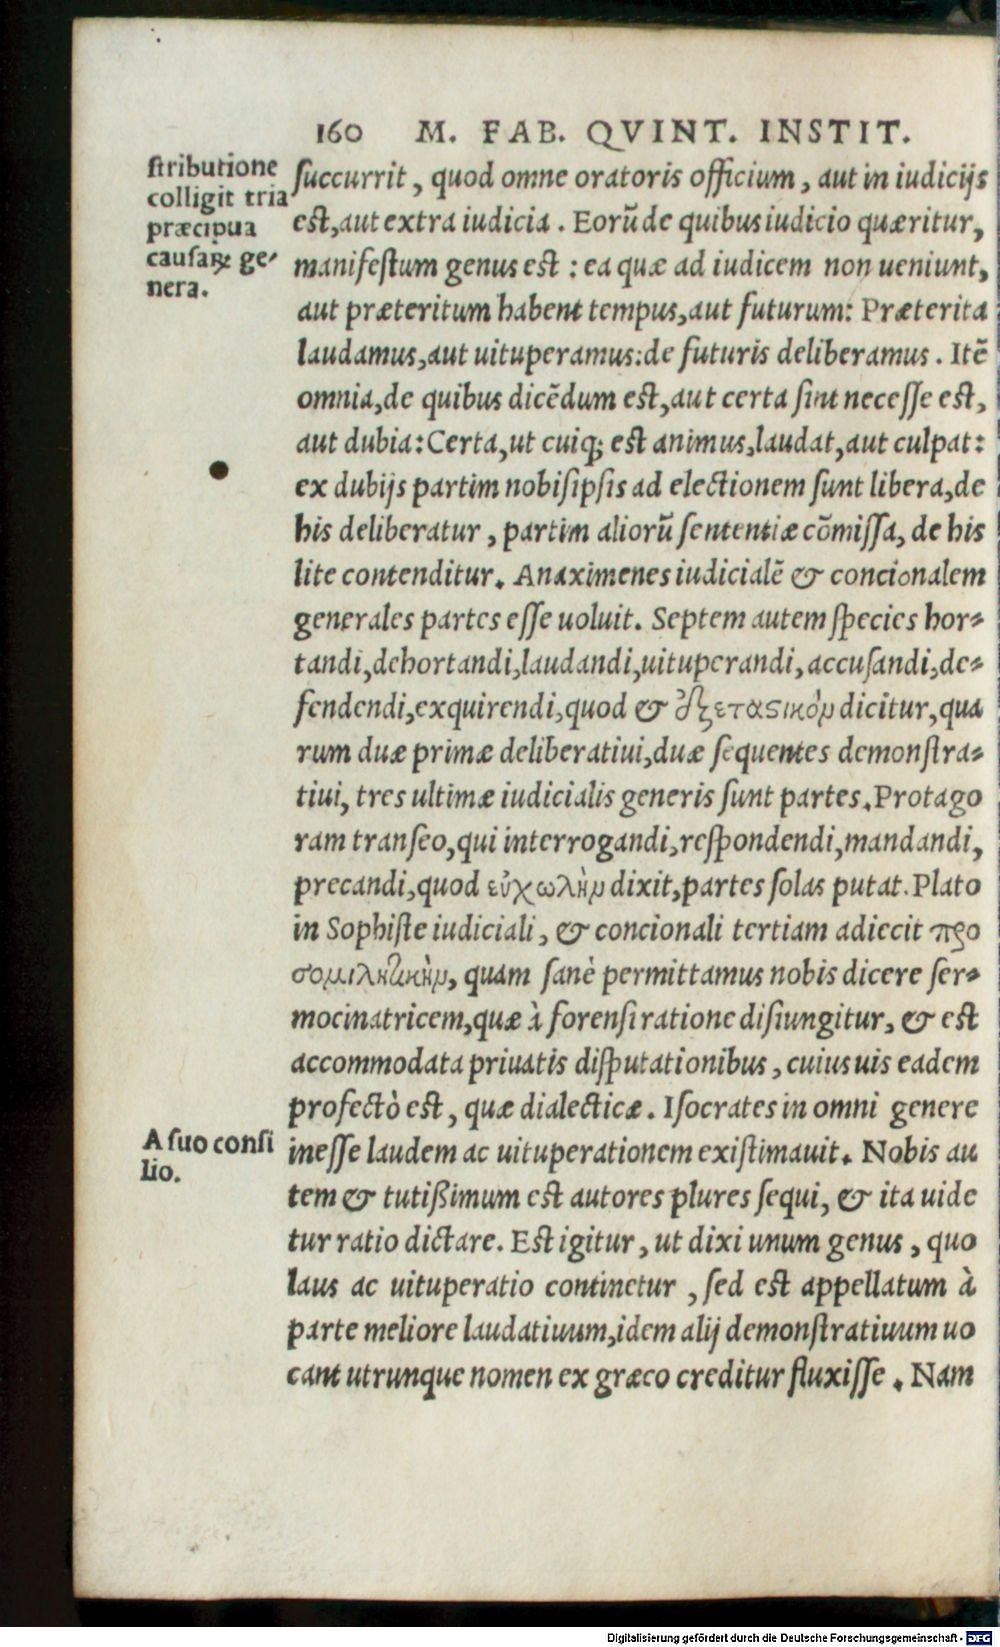 160 M. FAB. QVINT. INSTIT.
stributione
colligit tria
præcipua
causaꝝ ge-
nera.
succurrit, quod omne oratoris officium, aut in iudicijs
est, aut extra iudicia. Eorũ de quibus iudicio quæritur,
manifestum genus est: ea quæ ad iudicem non ueniunt,
aut præteritum habent tempus, aut futurum: Præterita
laudamus, aut uituperamus: de futuris deliberamus. Itẽ
omnia, de quibus dicẽdum est, aut certa sint necesse est,
aut dubia: Certa, ut cuiq; est animus, laudat, aut culpat:
ex dubijs partim nobis ipsis ad electionem sunt libera, de
his deliberatur, partim aliorũ sententiæ cõmissa, de his
lite contenditur. Anaximenes iudicialẽ & concionalem
generales partes esse uoluit. Septem autem species hor-
tandi, dehortandi, laudandi, uituperandi, accusandi, de-
fendendi, exquirendi, quod & ἐξεταστικὸν dicitur, qua
rum duæ primæ deliberatiui, duæ sequentes demonstra-
tiui, tres ultimæ iudicialis generis sunt partes. Protago
ram transeo, qui interrogandi, respondendi, mandandi,
precandi, quod εὐχωλὴν dixit, partes solas putat. Plato
in Sophiste iudiciali, & concionali tertiam adiecit προ
σομιλητικὴν, quam sanè permittamus nobis dicere ser-
mocinatricem, quæ à forensi ratione disiungitur, & est
accommodata priuatis disputationibus, cuius uis eadem
profectò est, quæ dialecticæ. Isocrates in omni genere
A suo consi
lio.
inesse laudem ac uituperationem existimauit. Nobis au
tem & tutißimum est autores plures sequi, & ita uide
tur ratio dictare. Est igitur, ut dixi unum genus, quo
laus ac uituperatio continetur, sed est appellatum à
parte meliore laudatiuum, idem alij demonstratiuum uo
cant utrunque nomen ex græco creditur fluxisse. Nam
Digitalisierung gefördert durch die Deutsche Forschungsgemeinschaft - DFG